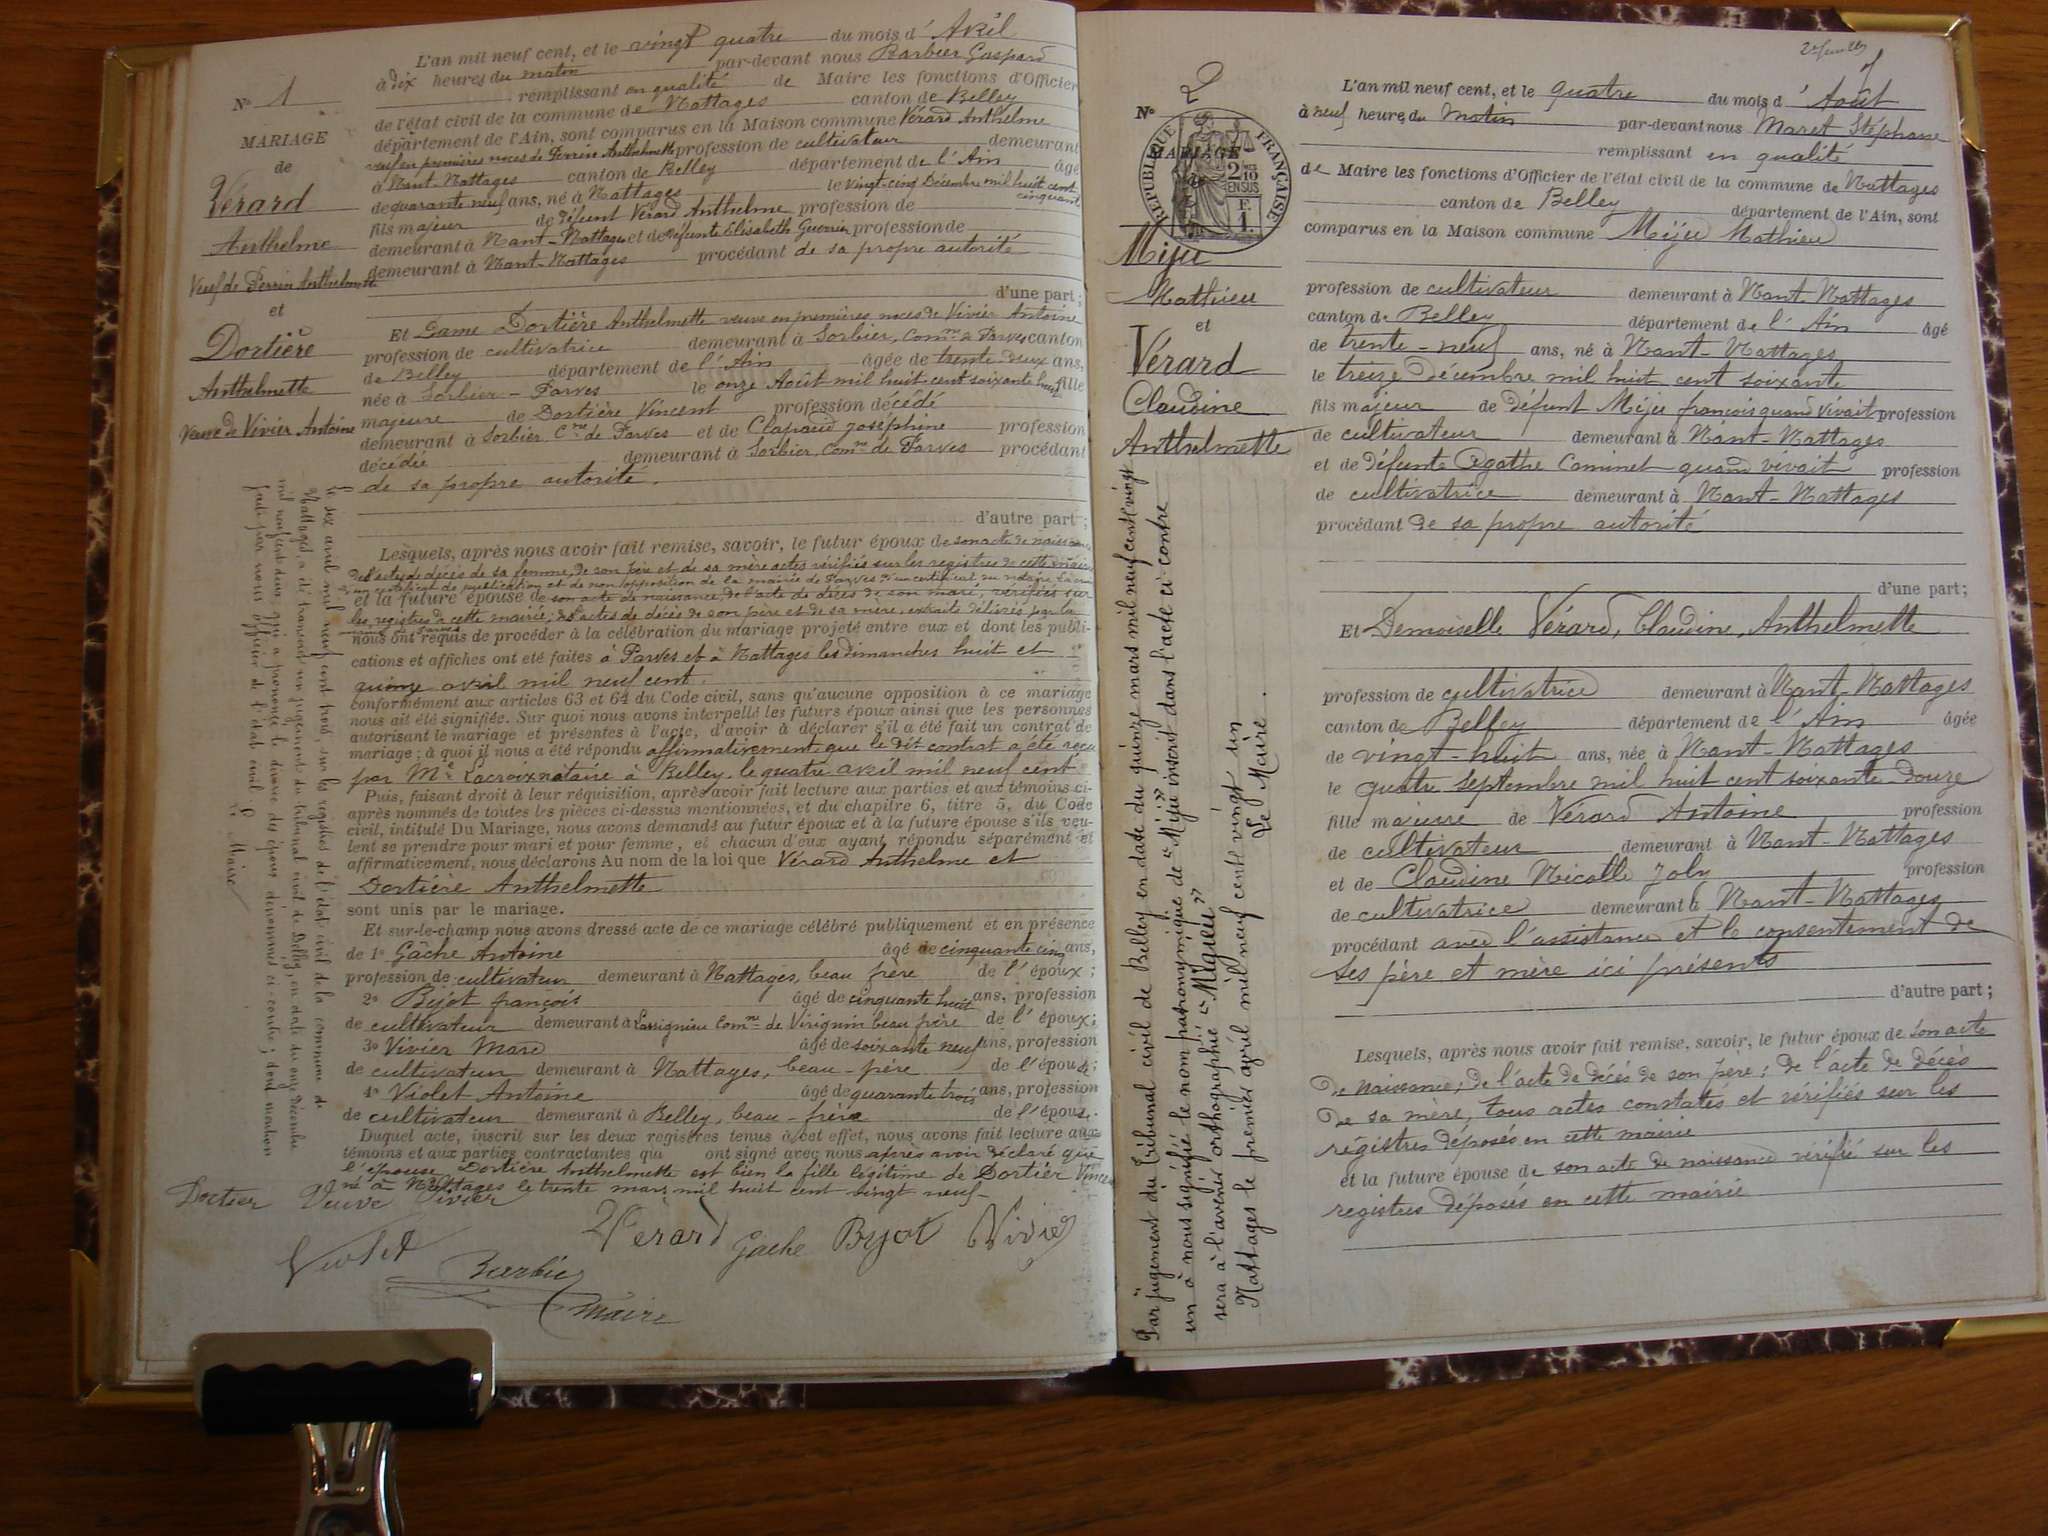 L'an mil neuf cent, et le vingt quatre du mois d'Avril
à dix heures du matin par-devant nous Barbier Gaspard
remplissant en qualité de Maire les fonctions d'Officier
de l'état civil de la commune de Nattages canton de Belley
département de l'Ain, sont comparus en la Maison commune Vérard Anthelme
veuf en premières noces de Perrin Anthelmette profession de cultivateur demeurant
à Nant-Nattages canton de Belley département de l'Ain âgé
de quarante neuf ans, né à Nattages le vingt-cinq Décembre mil huit cent
cinquant
fils majeur de défunt Vérard Anthelme profession de
demeurant à Nant-Nattages et de défunte Elisabeth Guerrier profession de
demeurant à Nant-Nattages procédant de sa propre autorité
d'une part;
Et Dame Dortière Anthelmette veuve en premières noces de Vivier Antoine
profession de cultivatrice demeurant à Sorbier, Com.ne de Parves canton
de Belley département de l'Ain âgée de trente-deux ans,
née à Sorbier - Parves le onze Août mil huit cent soixante huit fille
majeure de Dortière Vincent profession décédé
demeurant à Sorbier C.ne de Parves et de Clapaud Joséphine profession
décédée demeurant à Sorbier, Com.ne de Parves procédant
de sa propre autorité.
d'autre part;
Lesquels, après nous avoir fait remise, savoir, le futur époux de son acte de naissance
de l'acte de décès de sa femme, de son père et de sa mère actes vérifiés sur les registres de cette mairie
d'un certificat de publication et de non opposition de la mairie de Parves d'un certificat du notaire Lacroix
et la future épouse de son acte de naissance, de l'acte de décès de son mari, vérifiés sur
les registres de cette mairie; des actes de décès de son père et de sa mère, extraits délivrés par la
mairie de Parves
nous ont requis de procéder à la célébration du mariage projeté entre eux et dont les publi-
cations et affiches ont été faites à Parves et à Nattages les dimanches huit et
quinze avril mil neuf cent.
conformément aux articles 63 et 64 du Code civil, sans qu'aucune opposition à ce mariage
nous ait été signifiée. Sur quoi nous avons interpellé les futurs époux ainsi que les personnes
autorisant le mariage et présentes à l'acte, d'avoir à déclarer s'il a été fait un contrat de
mariage; à quoi il nous a été répondu affirmativement que le dit contrat a été reçu
par M.e Lacroix notaire à Belley, le quatre avril mil neuf cent
Puis, faisant droit à leur réquisition, après avoir fait lecture aux parties et aux témoins ci-
après nommés de toutes les pièces ci-dessus mentionnées, et du chapitre 6, titre 5, du Code
civil, intitulé Du Mariage, nous avons demandé au futur époux et à la future épouse s'ils veu-
lent se prendre pour mari et pour femme, et chacun d'eux ayant répondu séparément et
affirmativement, nous déclarons Au nom de la loi que Vérard Anthelme et
Dortière Anthelmette
sont unis par le mariage.
Et sur-le-champ nous avons dressé acte de ce mariage célébré publiquement et en présence
de 1º Gâche Antoine âgé de cinquante cinq ans,
profession de cultivateur demeurant à Nattages, beau frère de l'époux;
2º Bijot françois âgé de cinquante huit ans, profession
de cultivateur demeurant à Lassignieu Com.ne de Virignin beau frère de l'époux;
3º Vivier Marc âgé de soixante neuf ans, profession
de cultivateur demeurant à Nattages, beau-père de l'épouse;
4º Violet Antoine âgé de quarante trois ans, profession
de cultivateur demeurant à Belley, beau-frère de l'épouse.
Duquel acte, inscrit sur les deux registres tenus à cet effet, nous avons fait lecture aux
témoins et aux parties contractantes qui ont signé avec nous après avoir déclaré que
l'épouse Dortière Anthelmette est bien la fille légitime de Dortier Vincent
né à Nattages le trente mars mil huit cent vingt neuf-
Dortier Veuve Vivier
Vérard Gache Byot Vivier
Violet
Barbier
maire
Nº 1
MARIAGE
de
Vérard
Anthelme
Veuf de Perrin Anthelmette
et
Dortière
Anthelmette
Veuve de Vivier Antoine
Le six avril mil neuf cent trois, sur les registres de l'état civil de la commune de
Nattages a été transcrit un jugement du tribunal civil de Belley en date du onze Décembre
mil neuf cent deux, qui a prononcé le divorce des époux dénommés ci-contre; dont mention
faite par nous officier de l'état civil.
Le Maire
2e feuillet
Nº 2
MARIAGE
de
RÉPUBLIQUE FRANÇAISE
2/10
EN SUS
F.
1.
Miju
Mathieu
et
Vérard
Claudine
Anthelmette
Par jugement du tribunal civil de Belley en date du quinze mars mil neuf cent vingt
un à nous signifié le nom patronymique de "Miju" inscrit dans l'acte ci-contre
sera à l'avenir orthographié "Migieu"
Nattages le premier avril mil neuf cent vingt un
Le Maire.
L'an mil neuf cent, et le quatre du mois d'Août
à neuf heures du matin par-devant nous Maret Stéphane
remplissant en qualité
de Maire les fonctions d'Officier de l'état civil de la commune de Nattages
canton de Belley département de l'Ain, sont
comparus en la Maison commune Miju Mathieu
profession de cultivateur demeurant à Nant-Nattages
canton de Belley département de l'Ain âgé
de trente-neuf ans, né à Nant-Nattages
le treize décembre mil huit cent soixante
fils majeur de défunt Miju françois quand vivait profession
de cultivateur demeurant à Nant-Nattages
et de défunte Agathe Caminet quand vivait profession
de cultivatrice demeurant à Nant-Nattages
procédant de sa propre autorité
d'une part;
Et Demoiselle Vérard, Claudine, Anthelmette
profession de cultivatrice demeurant à Nant-Nattages
canton de Belley département de l'Ain âgée
de vingt-huit ans, née à Nant-Nattages
le quatre septembre mil huit cent soixante douze
fille majeure de Vérard Antoine profession
de cultivateur demeurant à Nant-Nattages
et de Claudine Nicolle Joly profession
de cultivatrice demeurant à Nant-Nattages
procédant avec l'assistance et le consentement de
ses père et mère ici présents
d'autre part;
Lesquels, après nous avoir fait remise, savoir, le futur époux de son acte
de naissance; de l'acte de décès de son père; de l'acte de décès
de sa mère, tous actes constatés et vérifiés sur les
régistres déposés en cette mairie
et la future épouse de son acte de naissance vérifié sur les
registres déposés en cette mairie